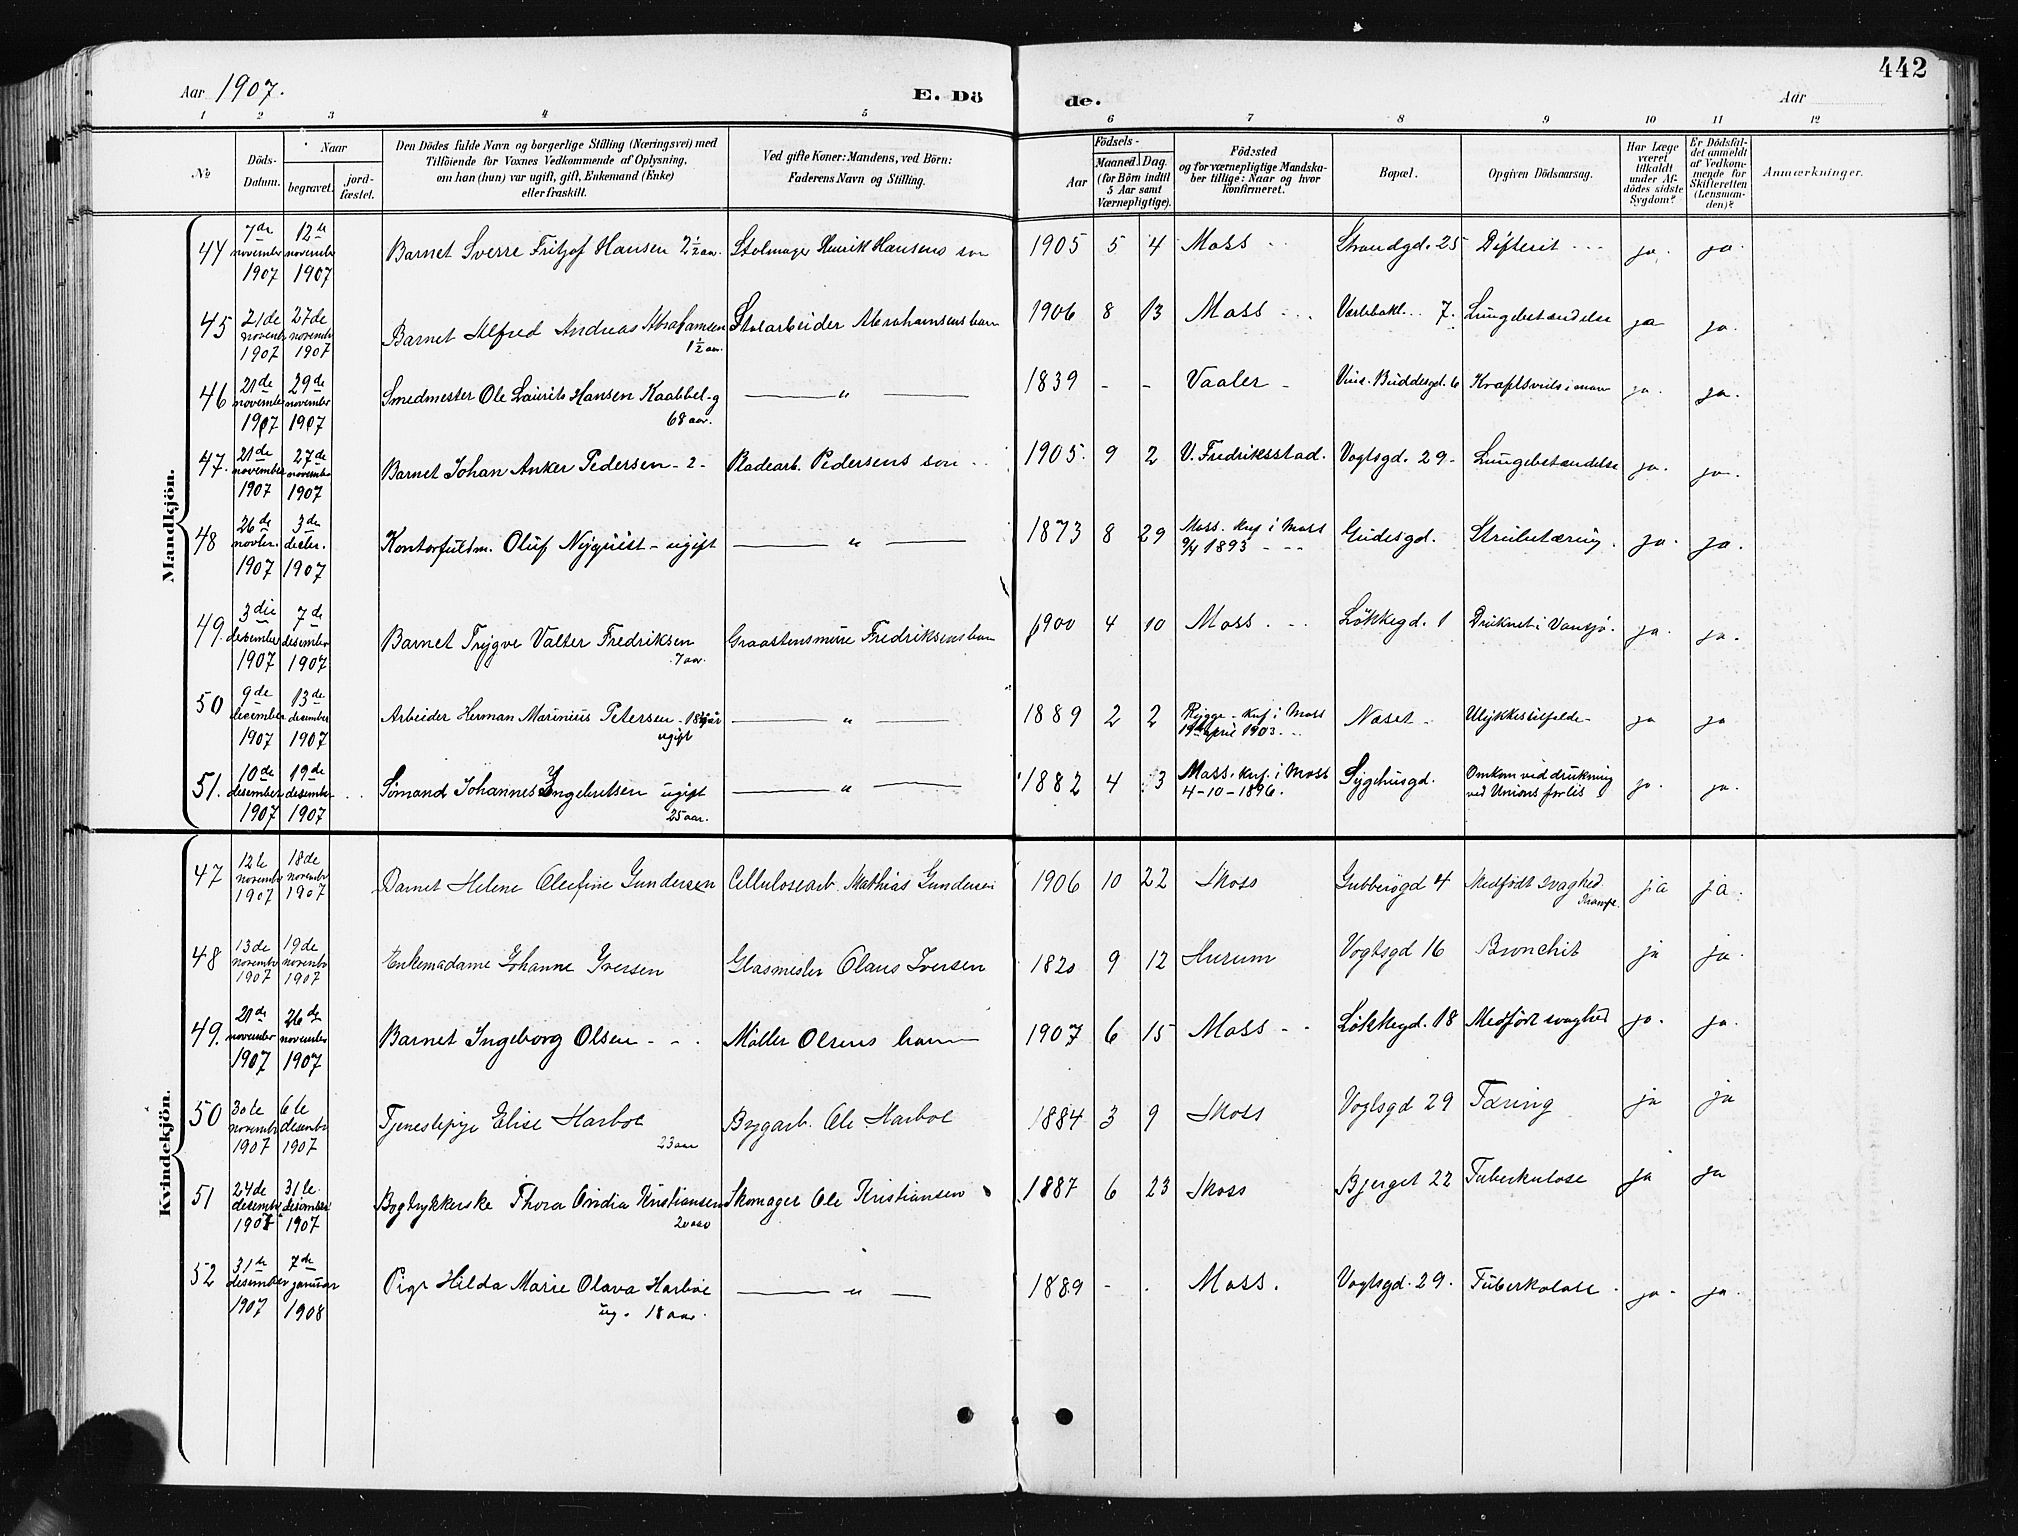 442
Aar 1907.
E. Dö
de.
Aar
1 2 3 4 5 6 7 8 9 10 11 12
№
Döds-Datum.
Naar
begravet.
jord-fæstet.
Den Dödes fulde Navn og borgerlige Stilling (Næringsvei) med
Tilföiende for Voxnes Vedkommende af Oplysning,
om han (hun) var ugift, gift, Enkemand (Enke)
eller fraskilt.
Ved gifte Koner: Mandens, ved Börn:
Faderens Navn og Stilling.
Födsels-
Aar
Maaned. Dag.
(for Börn indtil
5 Aar samt
Værnepligtige).
Födested
og for værnepligtige Mandska-
ber tillige: Naar og hvor
konfirmeret.
Bopæl.
Opgiven Dödsaarsag.
Har Læge
været
tilkaldt
under Af-
dödes sidste
Sygdom?
Er Dödsfal-
det anmeldt
af Vedkom-
mende for
Skifteretten
(Lensman-
den)?
Anmærkninger.
Mandkjön.
44 7de november 1907 12te november 1907 Barnet Sverre Fritjof Hansen 2½ aar. Stolmager Henrik Hansens søn 1905 5 4 Moss Strandgd. 25 Difterit ja. ja.
45 21de november 1907 27de november 1907 Barnet Alfred Andreas Abrahamsen 1½ aar. Stolarbeider Abrahamsens barn 1906 8 13 Moss 7. Lungebetændelse ja ja.
46 21de november 1907 29de november 1907 Smedmester Ole Laurits Hansen Kaabbel - g 68 aar. — " — 1839 - - Vaaler - Buddesgd. 6 Kræftsvuls i maven ja. ja.
47. 21de november 1907 27de november 1907 Barnet Johan Anker Pedersen - 2 - Pladearb. Pedersens søn 1905. 9 2 V. Fredriksstad. Vogtsgd. 29 - Lungebetændelse ja. ja.
48 26de novbr. 1907 3de decbr. 1907 Kontorfuldm. Oluf Nyquist - ugift — " — 1873 8 29 Moss. Knf. i Moss 9/4 1893 Gudesgd. Strubetæring. ja. ja.
49. 3die desember 1907 7de desember 1907 Barnet Trygve Valter Fredriksen 7 aar. Graastensmine Fredriksens barn 1900 4 10 Moss. Løkkegd. 1 Druknet i Vansjø. ja. ja.
50 9de december 1907 13de desember 1907 Arbeider Herman Marinius Petersen - 18 aar ugift — " — 1889 2 2 Rygge - Knf. i Moss 19de april 1903. Næset - Ulykkestilfælde - ja ja
51. 10de desember 1907 19de desember 1907 Sømand Johannes Yngebretsen ugift 25 aar. — " — 1882 4 3 Moss. Knf. i Moss 4-10-1896. Sygehusgd. Omkom ved drukning ved Unions forlis ja. ja.
Kvindekjön.
47 12te november 1907 18de november 1907 Barnet Helene Olefine Gundersen Cellulosearb. Mathias Gundersen 1906 10 22 Moss Gubberøgd 4 Medfødt svaghed Krampe. ja ja.
48 13de november 1907 19de november 1907 Enkemadame Johanne Iversen Glasmester Olaus Iversen 1820 9 12 Hurum Vogtsgd 16 Bronchit ja ja.
49. 21de november 1907 26de november 1907 Barnet Ingeborg Olsen - - . Møller Olsens barn 1907 6 15 Moss - - Løkkegd. 18 Medfødt svaghed ja. ja.
50 30te november 1907 6te desember 1907 Tjenestepige Elise Harboe 23 aar Brygarb. Ole Harboe 1884 3 9 Moss Vogtsgd 29 Tæring ja ja
51 24de desember 1907 31te desember 1907 Bogtrykkerske Thora Ovidia Kristiansen 20 aar Skomager Ole Kristiansen 1887 6 23 Moss Bjerget 22 Tuberkulose ja ja
52 31te desember 1907 7de januar 1908 Pige Hilda Marie Olava Harboe ug. 18 aar. — " — 1889 - . Moss. Vogtsgd. 29. Tuberkolose. ja. ja.